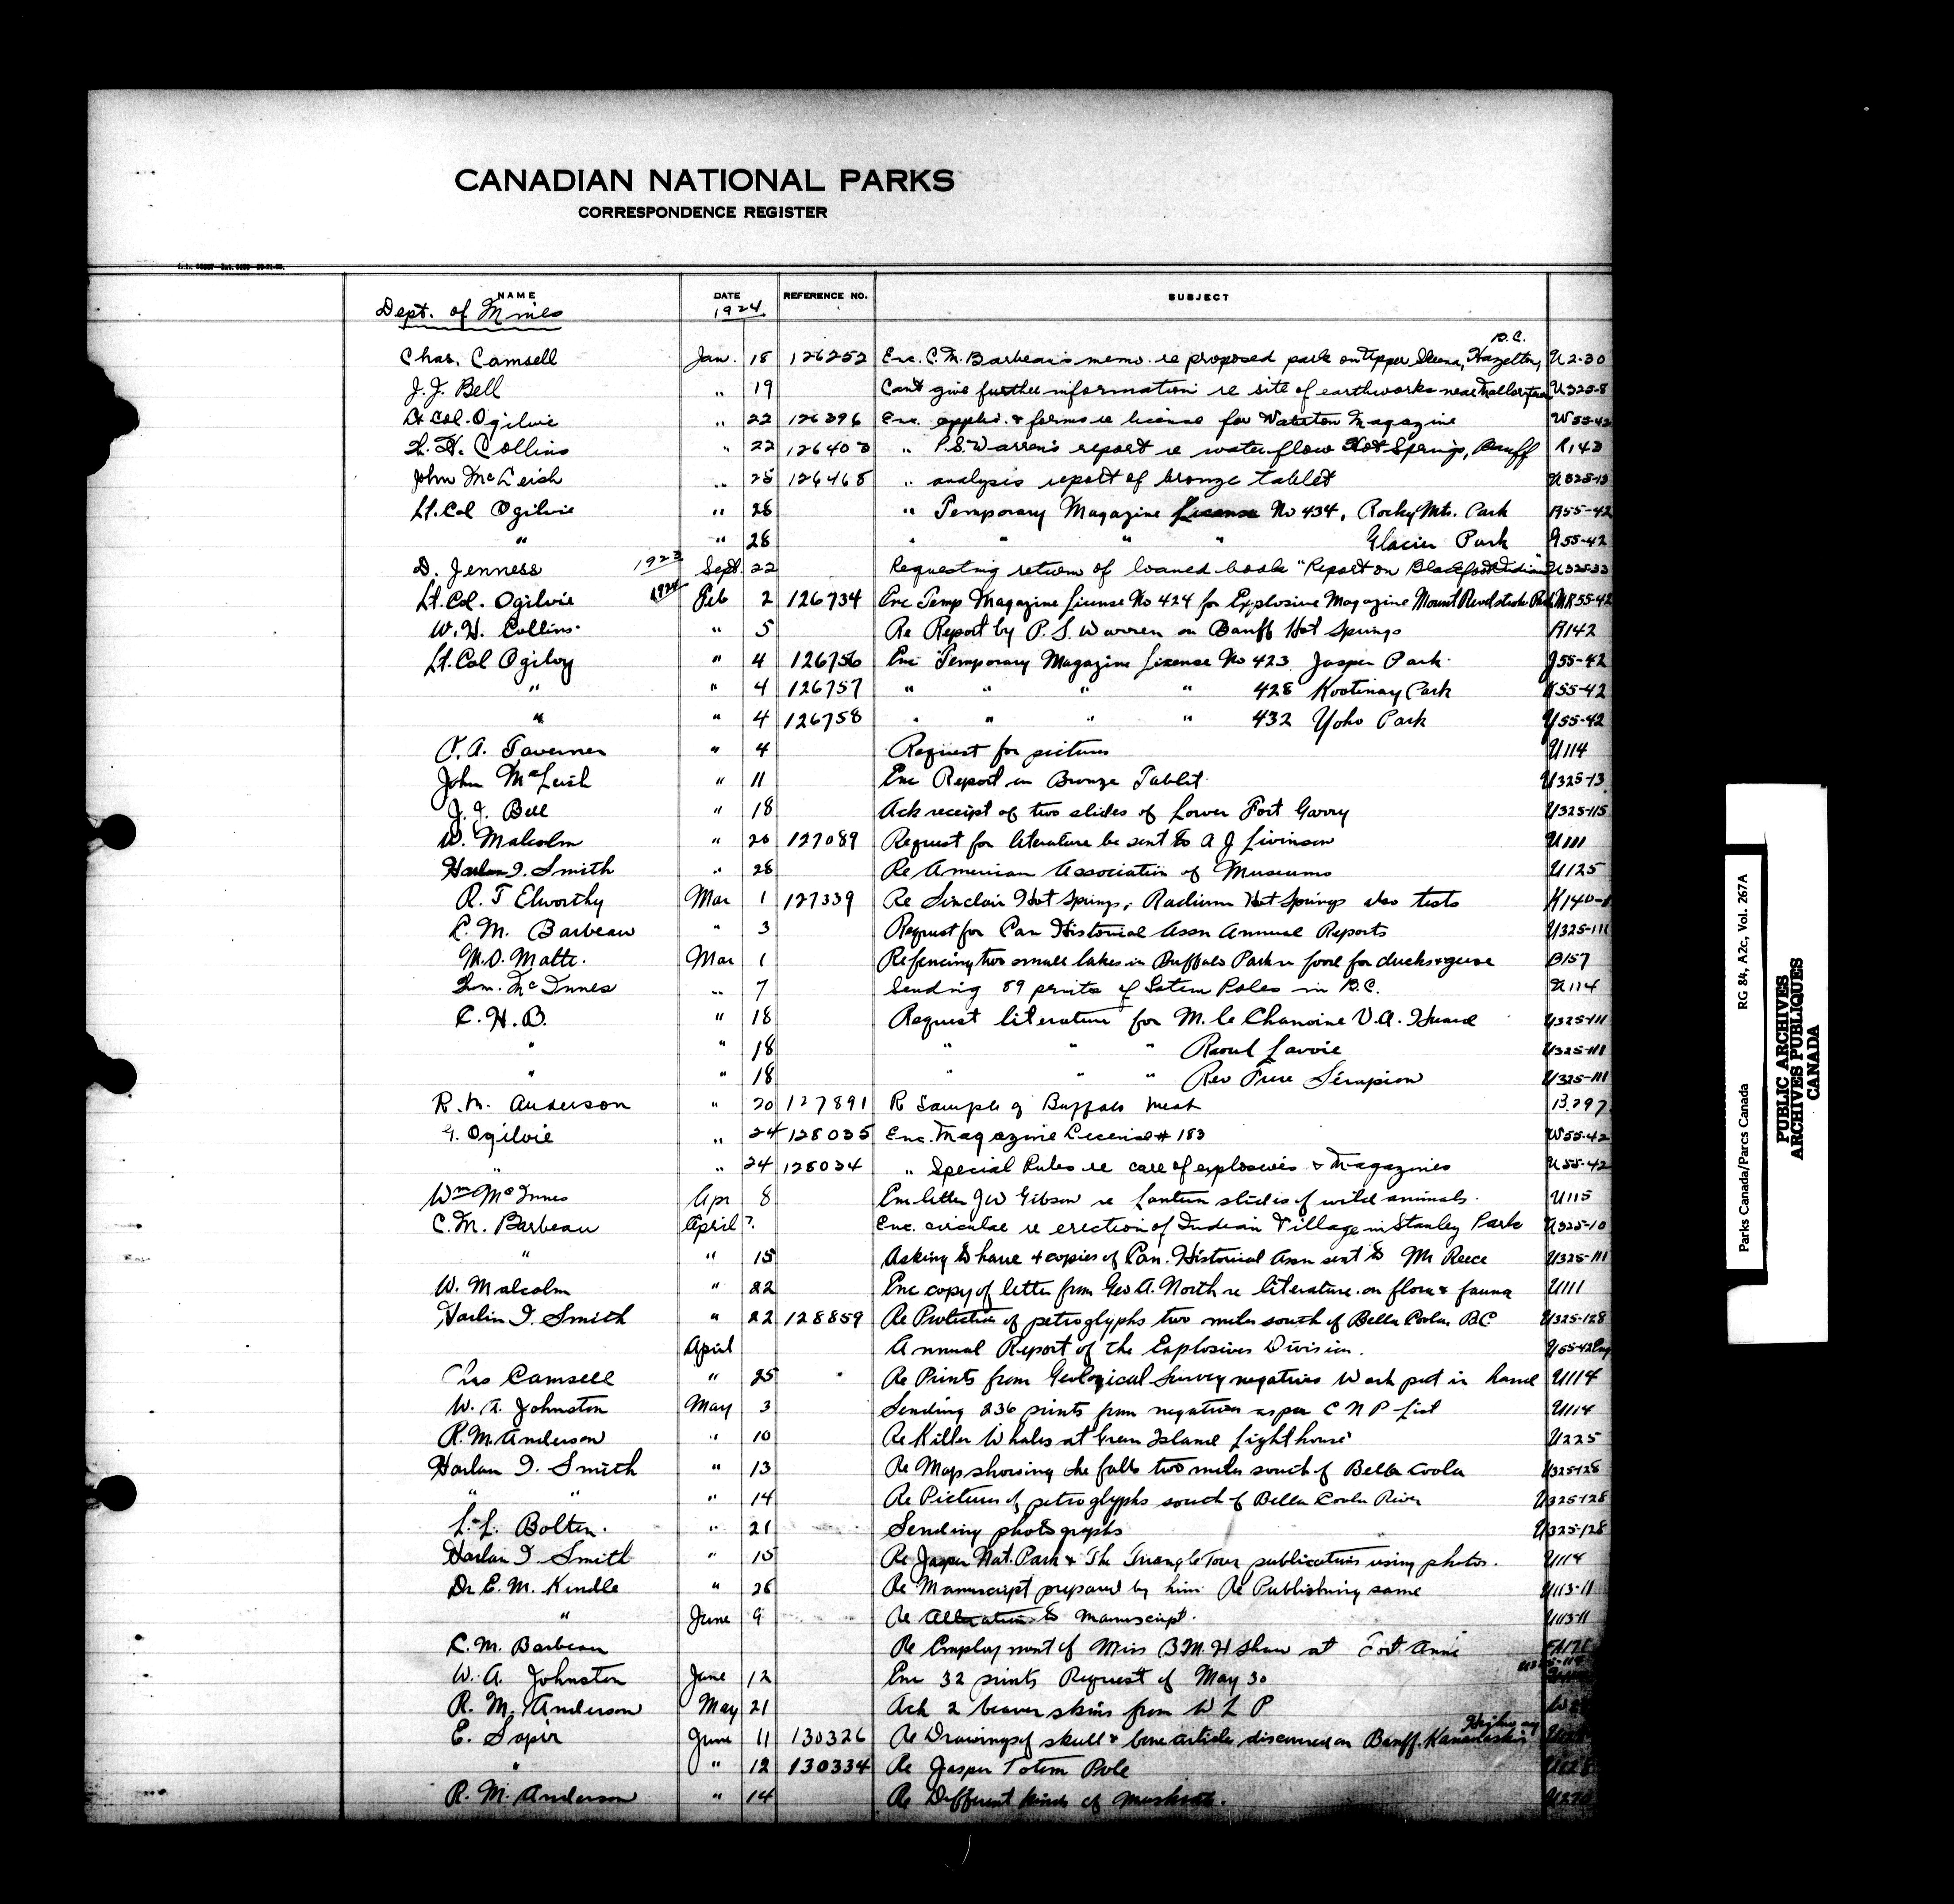 CANADIAN NATIONAL PARKS
CORRESPONDENCE REGISTER
NAME DATE REFERENCE NO. SUBJECT
Dept. of Mines 1924
B.C.
Chas. Camsell Jan. 18 126252 Enc. C.M. Barbeau's memo. re proposed park on Upper Skeena, Hazelton, U2-30
J.J. Bell " 19 Can't give further information re site of earthworks near U325-8
Lt Col. Ogilvie " 22 126396 Enc. applic. & forms re license for Waterton Magazine W55-42
Collins " 22 " P.S. Warren's report re water flow Hot Springs, Banff R143
John McLeish " 25 126468 " analysis report of bronze tablet U325-13
Lt. Col Ogilvie " 28 " Temporary Magazine License No 434, Rocky Mts. Park R55-42
" " 28 " " " " Glacier Park G55-42
D. Jenness 1923 Sept. 22 Requesting return of loaned book "Report on Blackfoot Indians" U325-33
Lt. Col. Ogilvie 1924 Feb 2 126734 Enc Temp Magazine License No 424 for Explosive Magazine Mount Revelstoke Park MR55-42
W.H. Collins " 5 Re Report by P.S. Warren on Banff Hot Springs R142
Lt. Col Ogilvy " 4 126756 Enc Temporary Magazine License No 423 Jasper Park J55-42
" " 4 126757 " " " " 428 Kootenay Park K55-42
" " 4 126758 " " " " 432 Yoho Park Y55-42
P.A. Taverner " 4 Request for pictures U114
John McLeish " 11 Enc Report on Bronze Tablet U325-13
J.J. Bell " 18 Ack receipt of two slides of Lower Fort Garry U325-115
W. Malcolm " 26 127089 Request for literature be sent to A J Livinson U111
Harlan I. Smith " 28 Re American Association of Museums U125
R.T Elworthy Mar 1 127339 Re Sinclair Hot Springs, Radium Hot Springs also tests K140-1
C.M. Barbeau " 3 Request for Can Historical Assn Annual Reports U325-111
M.O. Malte. Mar 1 Re fencing two small lakes in Buffalo Park re food for ducks & geese B157
Wm. McInnes " 7 Sending 89 prints of Totem Poles in B.C. U114
C.H.B. " 18 Request literature for M. le Chanoine V.A. Huard U325-111
" " 18 " " " Raoul Lavoie U325-111
" " 18 " " " Rev Frere Serapion U325-111
R.M. Anderson " 20 127891 R Sample of Buffalo meat B297
G. Ogilvie " 24 128035 Enc. Magazine License # 183 W55-42
" " 24 128034 " Special Rules re care of explosives & Magazines U55-42
Wm McInnes Apr 8 Enc letter J W Gibson re Lantern slides of wild animals. U115
C.M. Barbeau April ?. Enc. circular re erection of Indian Village in Stanley Park U325-10
" " 15 Asking to have 4 copies of Can. Historical Assn sent to Mr Reece U325-111
W. Malcolm " 22 Enc copy of letter from Geo A. North re literature on flora & fauna U111
Harlin I. Smith " 22 128859 Re Protection of petroglyphs two miles south of Bella Coola BC U325-128
April Annual Report of the Explosives Division. U55-42
Chas Camsell " 25 Re Prints from Geological Survey negatives Work put in hand U114
W.A. Johnston May 3 Sending 236 prints from negatives as per C N P List U114
R.M. Anderson " 10 Re Killer Whales at Green Island Lighthouse U225
Harlan I. Smith " 13 Re Map showing the falls two miles south of Bella Coola U325-128
" " " 14 Re Pictures of petroglyphs south of Bella Coola River U325-128
L.L. Bolten. " 21 Sending photographs U325-128
Harlan I. Smith " 15 Re Jasper Nat. Park & The Triangle Tour publications using photos. U114
Dr E.M. Kindle " 26 Re Manuscript prepared by him Re Publishing same U113-11
" June 9 Re Alteration to manuscript. U113-11
C.M. Barbeau Re Employment of Miss B.M.H Shaw at Fort Anne
W.A. Johnston June 12 Enc 32 prints Request of May 30
R.M. Anderson May 21 Ack 2 beaver skins from W L P
E. Sapir June 11 130326 Re Drawings of skull & bone articles discovered on Banff. Highway
" " 12 130334 Re Jasper Totem Pole
R.M. Anderson " 14 Re Different kinds of Muskrat.
Parks Canada/Parcs Canada RG 84, A2c, Vol. 267A
PUBLIC ARCHIVES
ARCHIVES PUBLIQUES
CANADA